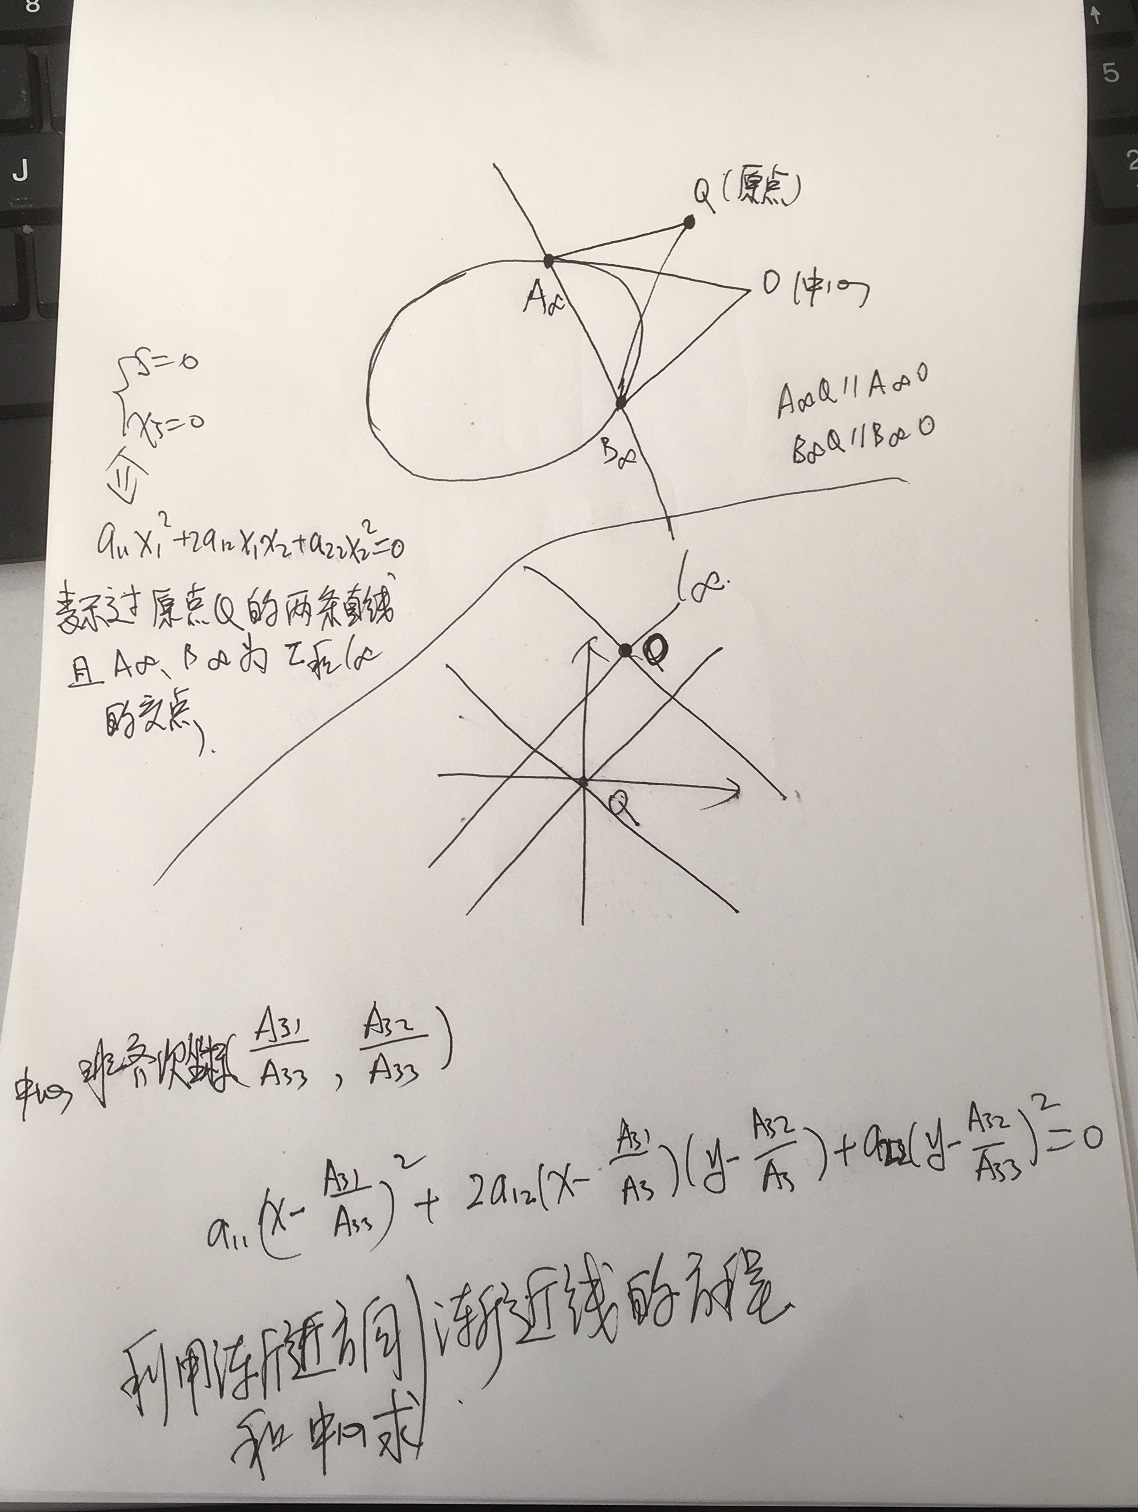 8
J
5
2
Q(原点)
O(中心)
A∞
B∞
A∞Q∥A∞O
B∞Q∥B∞O
S=0
x₃=0
a₁₁x₁²+2a₁₂x₁x₂+a₂₂x₂²=0
表示过原点Q的两条直线
且A∞、B∞为Γ和l∞
的交点).
l∞.
O
Q
中心 非齐次坐标(A₃₁/A₃₃, A₃₂/A₃₃)
a₁₁(x-A₃₁/A₃₃)²+2a₁₂(x-A₃₁/A₃)(y-A₃₂/A₃)+a₂₂(y-A₃₂/A₃₃)²=0
利用渐近方向
和中心求
渐近线的方程